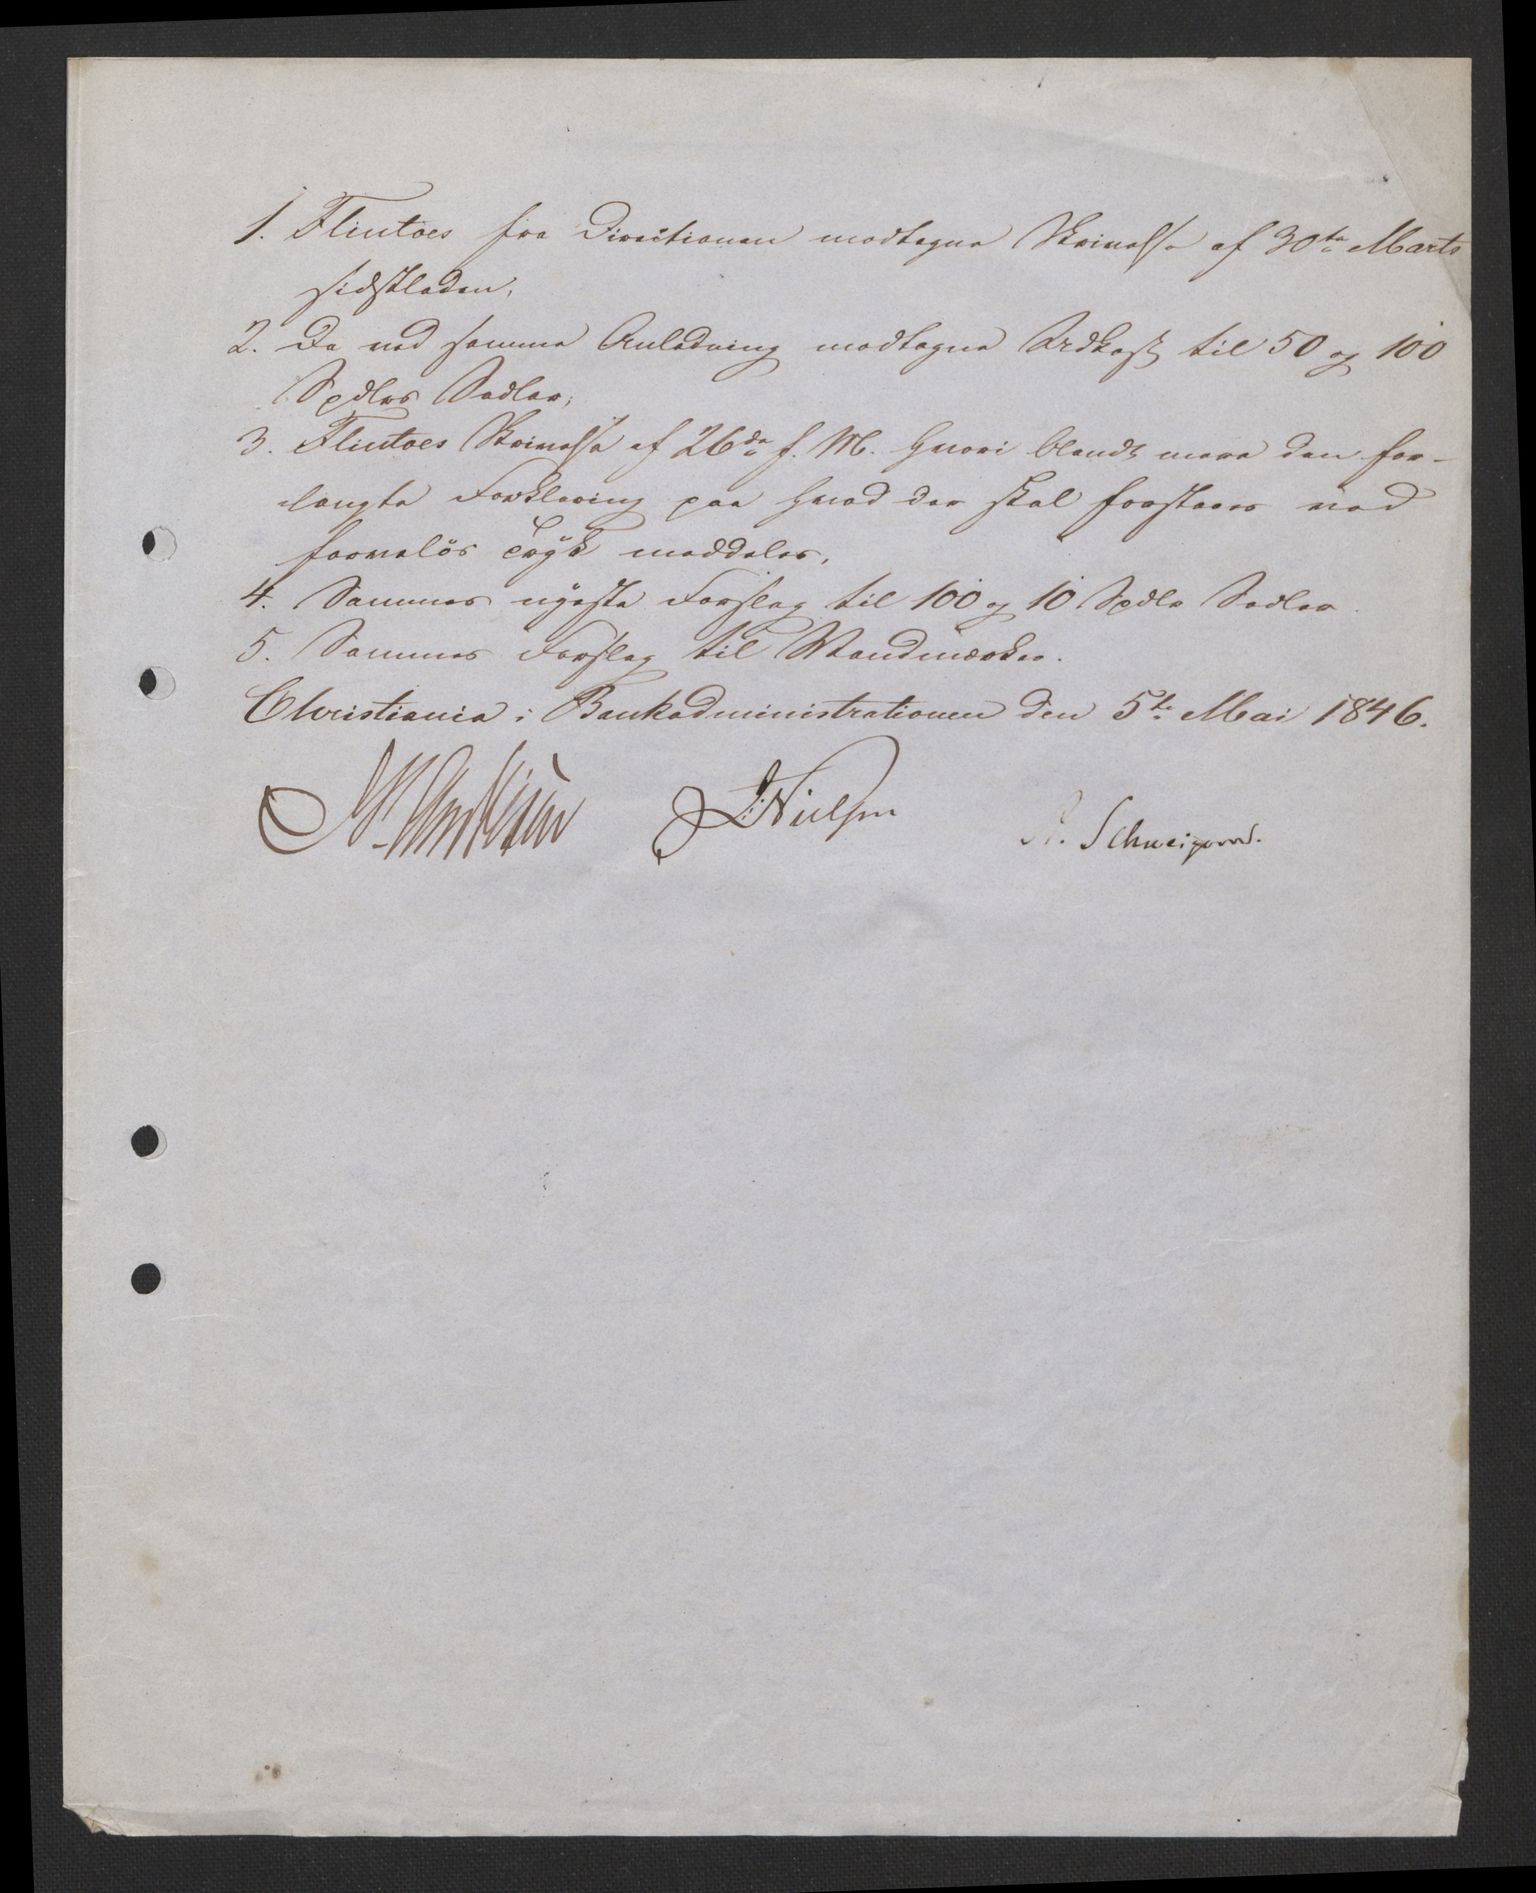 1. Flintoes fra Directionen modtagne Skrivelse af 30te Marts
sidstleden,
2. De ved samme Anledning modtagne Udkast til 50 og 100
Spdlrs Sedler,
3. Flintoes Skrivelse af 26de f. M. hvori blandt mere den for-
langte Forklaring paa hvad der skal forstaaes ved
farvelös Tryk meddeles,
4. Sammes nyeste Forslag til 100 og 10 Spdlr Sedler.
5. Sammes Forslag til Vandmærker.
Christiania i Bankadministrationen den 5te Mai 1846.
J. Nielsen A. Schweigaard.